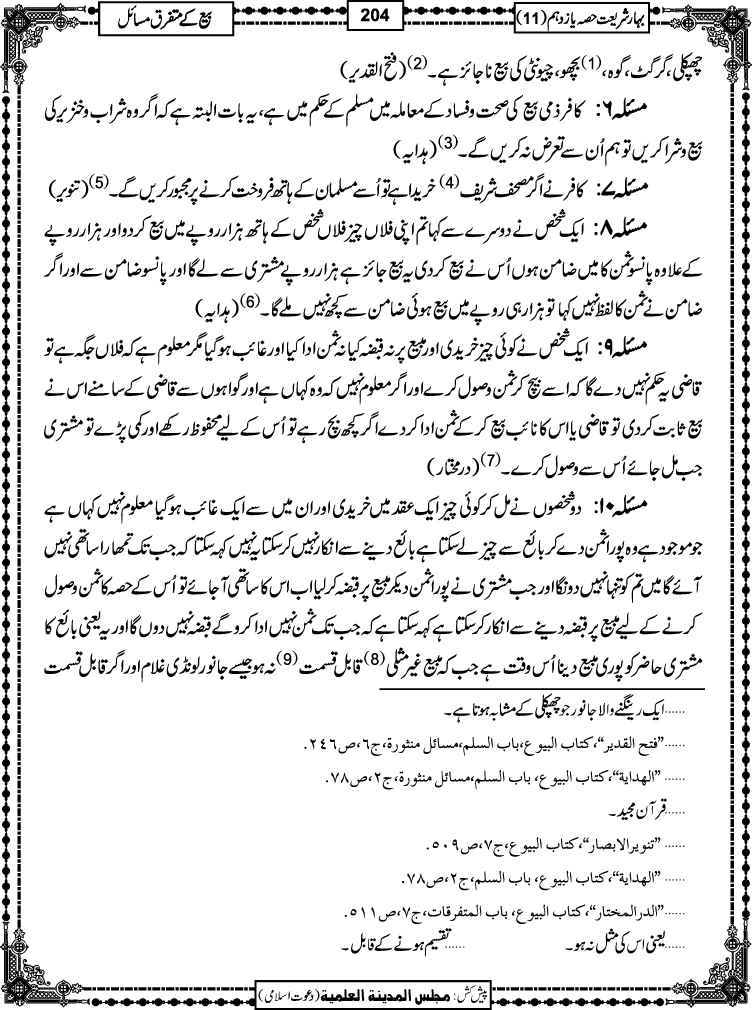 بہارِ شریعت حصہ یازدہم (11)
204
بیع کے متفرق مسائل
چھپکلی، گرگٹ، گوہ، (1) بچھو، چیونٹی کی بیع ناجائز ہے۔ (2) (فتح القدیر)
مسئلہ ۶: کافر ذمی بیع کی صحت و فساد کے معاملہ میں مسلم کے حکم میں ہے، یہ بات البتہ ہے کہ اگر وہ شراب و خنزیر کی
بیع و شرا کریں تو ہم اُن سے تعرض نہ کریں گے۔ (3) (ہدایہ)
مسئلہ ۷: کافر نے اگر مصحف شریف (4) خریدا ہے تو اُسے مسلمان کے ہاتھ فروخت کرنے پر مجبور کریں گے۔ (5) (تنویر)
مسئلہ ۸: ایک شخص نے دوسرے سے کہا تم اپنی فلاں چیز فلاں شخص کے ہاتھ ہزار روپے میں بیع کردو اور ہزار روپے
کے علاوہ پانسو ثمن کا میں ضامن ہوں اُس نے بیع کردی یہ بیع جائز ہے ہزار روپے مشتری سے لے گا اور پانسو ضامن سے اور اگر
ضامن نے ثمن کا لفظ نہیں کہا تو ہزار ہی روپے میں بیع ہوئی ضامن سے کچھ نہیں ملے گا۔ (6) (ہدایہ)
مسئلہ ۹: ایک شخص نے کوئی چیز خریدی اور مبیع پر نہ قبضہ کیا نہ ثمن ادا کیا اور غائب ہوگیا مگر معلوم ہے کہ فلاں جگہ ہے تو
قاضی یہ حکم نہیں دے گا کہ اسے بیچ کر ثمن وصول کرے اور اگر معلوم نہیں کہ وہ کہاں ہے اور گواہوں سے قاضی کے سامنے اس نے
بیع ثابت کردی تو قاضی یا اس کا نائب بیع کرکے ثمن ادا کردے اگر کچھ بچ رہے تو اُس کے لیے محفوظ رکھے اور کمی پڑے تو مشتری
جب مل جائے اُس سے وصول کرے۔ (7) (درمختار)
مسئلہ ۱۰: دو شخصوں نے مل کر کوئی چیز ایک عقد میں خریدی اور ان میں سے ایک غائب ہوگیا معلوم نہیں کہاں ہے
جو موجود ہے وہ پورا ثمن دے کر بائع سے چیز لے سکتا ہے بائع دینے سے انکار نہیں کرسکتا یہ نہیں کہہ سکتا کہ جب تک تمھارا ساتھی نہیں
آئے گا میں تم کو تنہا نہیں دونگا اور جب مشتری نے پورا ثمن دیکر مبیع پر قبضہ کرلیا اب اس کا ساتھی آجائے تو اُس کے حصہ کا ثمن وصول
کرنے کے لیے مبیع پر قبضہ دینے سے انکار کرسکتا ہے کہہ سکتا ہے کہ جب تک ثمن نہیں ادا کروگے قبضہ نہیں دوں گا اور یہ یعنی بائع کا
مشتری حاضر کو پوری مبیع دینا اُس وقت ہے جب کہ مبیع غیر مثلی (8) قابل قسمت (9) نہ ہو جیسے جانور لونڈی غلام اور اگر قابل قسمت
......ایک رینگنے والا جانور جو چھپکلی کے مشابہ ہوتا ہے۔
......”فتح القدیر“، کتاب البیوع، باب السلم، مسائل منثورة، ج٦، ص٢٤٦.
......”الھدایة“، کتاب البیوع، باب السلم، مسائل منثورة، ج٢، ص٧٨.
......قرآن مجید۔
......”تنویر الابصار“، کتاب البیوع، ج٧، ص٥٠٩.
......”الھدایة“، کتاب البیوع، باب السلم، ج٢، ص٧٨.
......”الدرالمختار“، کتاب البیوع، باب المتفرقات، ج٧، ص٥١١.
......یعنی اس کی مثل نہ ہو۔ ......تقسیم ہونے کے قابل۔
پیش کش: مجلس المدینة العلمیة (دعوت اسلامی)